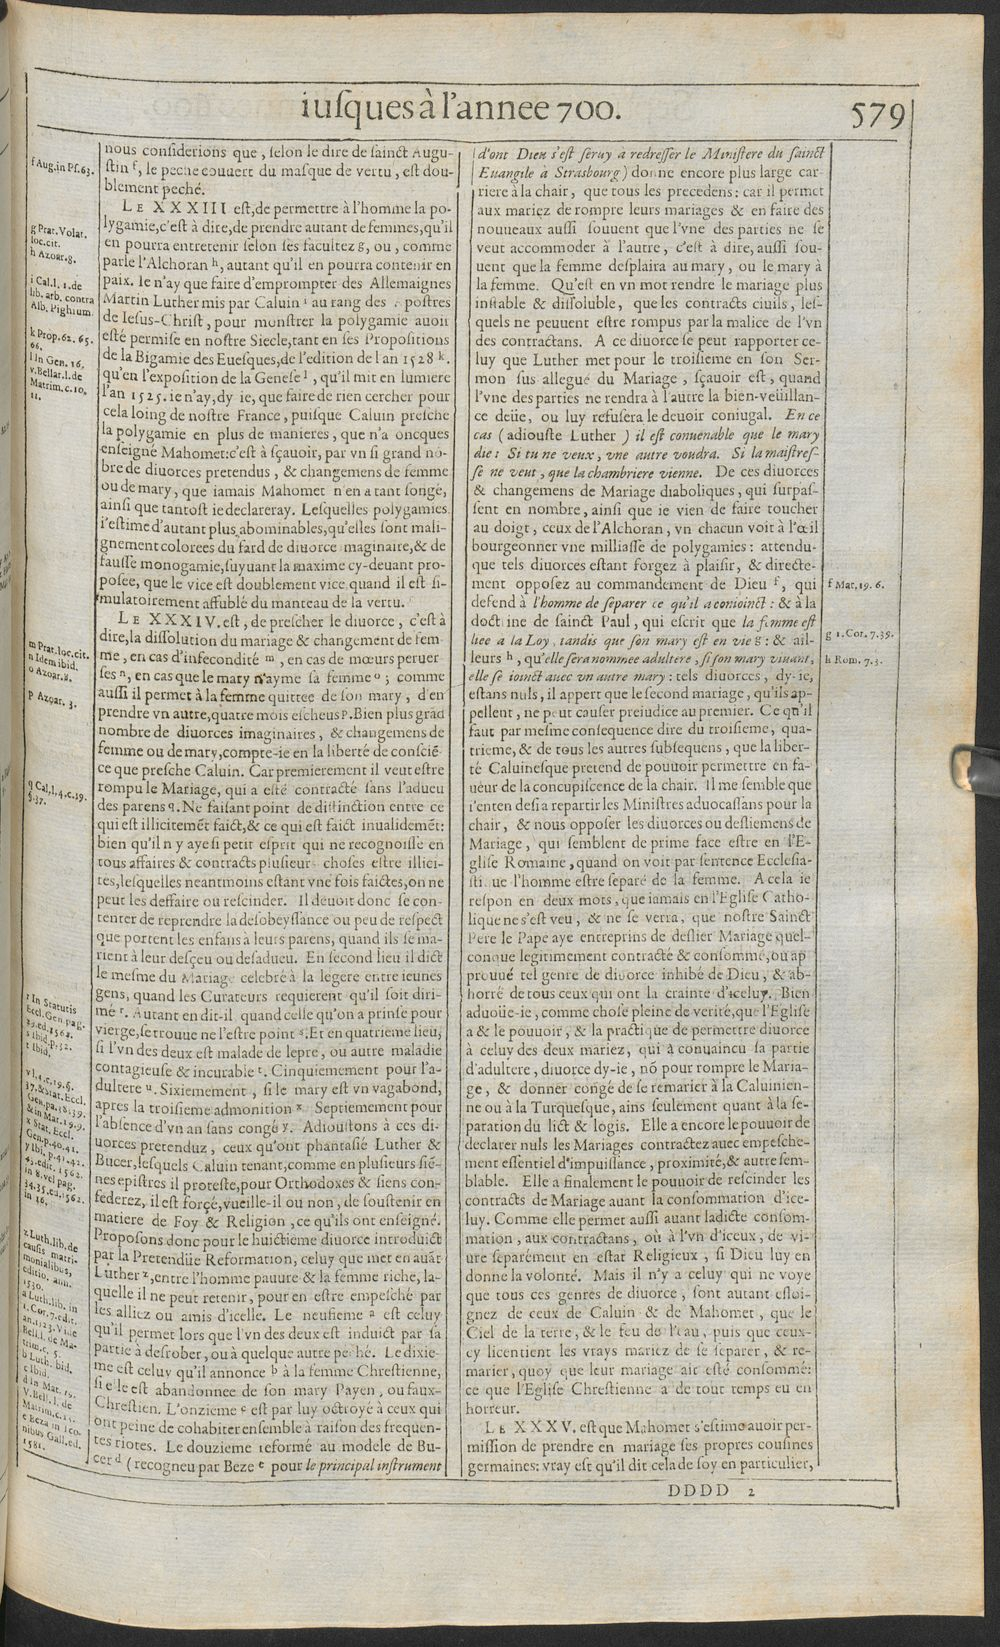 iusques à l'annee 700.
579
nous considerions que, selon le dire de sainct Augu-
stin f, le peché couuert du masque de vertu, est dou-
blement peché.
LE XXXIII est, de permettre à l'homme la po-
lygamie, c'est à dire, de prendre autant de femmes, qu'il
en pourra entretenir selon ses facultez g, ou, comme
parle l'Alchoran h, autant qu'il en pourra contenir en
paix. Ie n'ay que faire d'emprompter des Allemaignes
Martin Luther mis par Caluin i au rang des postres
de Iesus-Christ, pour monstrer la polygamie auoir
esté permise en nostre Siecle, tant en ses Propositions
de la Bigamie des Euesques, de l'edition de l an 1528 k.
qu'en l'exposition de la Genese l, qu'il mit en lumiere
l'an 1525. ie n'ay, dy ie, que faire de rien cercher pour
cela loing de nostre France, puisque Caluin presche
la polygamie en plus de manieres, que n'a oncques
enseigné Mahomet: c'est à sçauoir, par vn si grand nō-
bre de diuorces pretendus, & changemens de femme
ou de mary, que iamais Mahomet n en a tant songé,
ainsi que tantost ie declareray. Lesquelles polygamies
i'estime d'autant plus abominables, qu'elles sont mali-
gnement colorees du fard de diuorce maginaire, & de
fausse monogamie, suyuant la maxime cy-deuant pro-
posee, que le vice est doublement vice quand il est si-
mulatoirement affublé du manteau de la vertu.
LE XXXIV. est, de prescher le diuorce, c'est à
dire, la dissolution du mariage & changement de fem-
me, en cas d'infecondité m, en cas de mœurs peruer
ses n, en cas que le mary n'ayme sa femme o; comme
aussi il permet à la femme quittee de son mary, d'en
prendre vn autre, quatre mois escheus p. Bien plus grād
nombre de diuorces imaginaires, & changemens de
femme ou de mary, compte-ie en la liberté de consciē-
ce que presche Caluin. Car premierement il veut estre
rompu le Mariage, qui a esté contracté sans l'adueu
des parens q. Ne faisant point de distinction entre ce
qui est illicitemēt faict, & ce qui est faict inualidemēt:
bien qu'il n y aye si petit esprit qui ne recognoisse en
tous affaires & contracts plusieurs choses estre illici-
tes, lesquelles neantmoins estant vne fois faictes, on ne
peut les deffaire ou rescinder. Il deuoit donc se con-
tenter de reprendre la desobeyssance ou peu de respect
que portent les enfans à leurs parens, quand ils se ma-
rient à leur desçeu ou desadueu. En second lieu il dict
le mesme du Mariage celebré à la legere entre ieunes
gens, quand les Curateurs requierent qu'il soit diri-
mé r. Autant en dit-il quand celle qu'on a prinse pour
vierge, se trouue ne l'estre point s. Et en quatrieme lieu,
si l'vn des deux est malade de lepre, ou autre maladie
contagieuse & incurable t. Cinquiemement pour l'a-
dultere u. Sixiemement, si le mary est vn vagabond,
apres la troisieme admonition x Septiemement pour
l'absence d'vn an sans congé y. Adioustons à ces di-
uorces pretenduz, ceux qu'ont phantasié Luther &
Bucer, lesquels Caluin tenant, comme en plusieurs siē-
nes epistres il proteste, pour Orthodoxes & siens con-
federez, il est forçé, vueille-il ou non, de soustenir en
matiere de Foy & Religion, ce qu'ils ont enseigné.
Proposons donc pour le huictieme diuorce introduict
par la Pretendüe Reformation, celuy que met en auāt
Luther z, entre l'homme pauure & la femme riche, la-
quelle il ne peut retenir, pour en estre empesché par
les alliez ou amis d'icelle. Le neufieme a est celuy
qu'il permet lors que l'vn des deux est induict par sa
partie à desrober, ou à quelque autre peché. Le dixie-
me est celuy qu'il annonce b à la femme Chrestienne,
si elle est abandonnee de son mary Payen, ou faux-
Chrestien. L'onzieme c est par luy octroyé à ceux qui
ont peine de cohabiter ensemble à raison des frequen-
tes riotes. Le douzieme reformé au modele de Bu-
cer d (recogneu par Beze e pour le principal instrument
f Aug. in Ps. 63.
g Prat. Volat.
loc. cit.
h Azoar. 8.
i Cal. l. 1. de
lib. arb. contra
Alb. Pighium.
k Prop. 62. 65.
66.
l In Gen. 16.
v. Bellar. l. de
Matrim. c. 10.
11.
m Prat. loc. cit.
n Idem ibid.
o Azoar. 8.
p Azoar. 3.
q Cal. l. 4. c. 19.
§. 37.
r In Statutis
Eccl. Gen. pag.
39. ed. 1562.
s ibid. p. 32.
t Ibid.
x Stat. Eccl.
Gen. p. 40. 41.
y Ibi. p. 41. 42.
43. edit. 1562.
in 8. vel pag.
34. 35. ed. 1562.
in 16.
z Luth. lib. de
causis matri-
monialibus,
editio. ann.
1530.
a Luth. lib. in
1. Cor. 7. edit.
an. 1523. Vide
Bell. l. de Ma-
trim. c. 5.
b Luth. ibid.
c Ibid.
d in Mat. 19.
V. Bell. l. de
Matrim. c. 15.
e Beza in Ico-
nibus Gall. ed.
1581.
d'ont Dieu s'est seruy a redresser le Ministere du sainct
Euangile à Strasbourg) donne encore plus large car-
riere à la chair, que tous les precedens: car il permet
aux mariez de rompre leurs mariages & en faire des
nouueaux aussi souuent que l'vne des parties ne se
veut accommoder à l'autre, c'est à dire, aussi sou-
uent que la femme desplaira au mary, ou le mary à
la femme. Qu'est en vn mot rendre le mariage plus
instable & dissoluble, que les contracts ciuils, les-
quels ne peuuent estre rompus par la malice de l'vn
des contractans. A ce diuorce se peut rapporter ce-
luy que Luther met pour le troisieme en son Ser-
mon sus allegué du Mariage, sçauoir est, quand
l'vne des parties ne rendra à l'autre la bien-veüillan-
ce deüe, ou luy refusera le deuoir coniugal. En ce
cas (adiouste Luther) il est conuenable que le mary
die: Si tu ne veux, vne autre voudra. Si la maistres-
se ne veut, que la chambriere vienne. De ces diuorces
& changemens de Mariage diaboliques, qui surpas-
sent en nombre, ainsi que ie vien de faire toucher
au doigt, ceux de l'Alchoran, vn chacun voit à l'œil
bourgeonner vne milliasse de polygamies: attendu-
que tels diuorces estant forgez à plaisir, & directe-
ment opposez au commandement de Dieu f, qui
defend à l'homme de separer ce qu'il a conioinct: & à la
doctrine de sainct Paul, qui escrit que la femme est
liee a la Loy, tandis que son mary est en vie g: & ail-
leurs h, qu'elle sera nommee adultere, si son mary viuant,
elle se ioinct auec vn autre mary: tels diuorces, dy-ie,
estans nuls, il appert que le second mariage, qu'ils ap-
pellent, ne peut causer preiudice au premier. Ce qu'il
faut par mesme consequence dire du troisieme, qua-
trieme, & de tous les autres subsequens, que la liber-
té Caluinesque pretend de pouuoir permettre en fa-
ueur de la concupiscence de la chair. Il me semble que
i'enten desia repartir les Ministres aduocassans pour la
chair, & nous opposer les diuorces ou desliemens de
Mariage, qui semblent de prime face estre en l'E-
glise Romaine, quand on voit par sentence Ecclesia-
sti ue l'homme estre separé de la femme. A cela ie
respon en deux mots, que iamais en l'Eglise Catho-
lique ne s'est veu, & ne se verra, que nostre Sainct
Pere le Pape aye entreprins de deslier Mariage quel-
conque legitimement contracté & consommé, ou ap
prouué tel genre de diuorce inhibé de Dieu, & ab-
horré de tous ceux qui ont la crainte d'iceluy. Bien
aduoüe-ie, comme chose pleine de verité, que l'Eglise
a & le pouuoir, & la practique de permettre diuorce
à celuy des deux mariez, qui à conuaincu sa partie
d'adultere, diuorce dy-ie, nō pour rompre le Maria-
ge, & donner congé de se remarier à la Caluinien-
ne ou à la Turquesque, ains seulement quant à la se-
paration du lict & logis. Elle a encore le pouuoir de
declarer nuls les Mariages contractez auec empesche-
ment essentiel d'impuissance, proximité, & autre sem-
blable. Elle a finalement le pouuoir de rescinder les
contracts de Mariage auant la consommation d'ice-
luy. Comme elle permet aussi auant ladicte consom-
mation, aux contractans, ou à l'vn d'iceux, de vi-
ure separément en estat Religieux, si Dieu luy en
donne la volonté. Mais il n'y a celuy qui ne voye
que tous ces genres de diuorce, sont autant esloi-
gnez de ceux de Caluin & de Mahomet, que le
Ciel de la terre, & le feu de l'eau, puis que ceux-
cy licentient les vrays mariez de se separer, & re-
marier, quoy que leur mariage ait esté consommé:
ce que l'Eglise Chrestienne a de tout temps eu en
horreur.
LE XXXV. est que Mahomet s'estime auoir per-
mission de prendre en mariage ses propres cousines
germaines: vray est qu'il dit cela de soy en particulier,
f Mat. 19. 6.
g 1. Cor. 7. 39.
h Rom. 7. 3.
DDDD 2